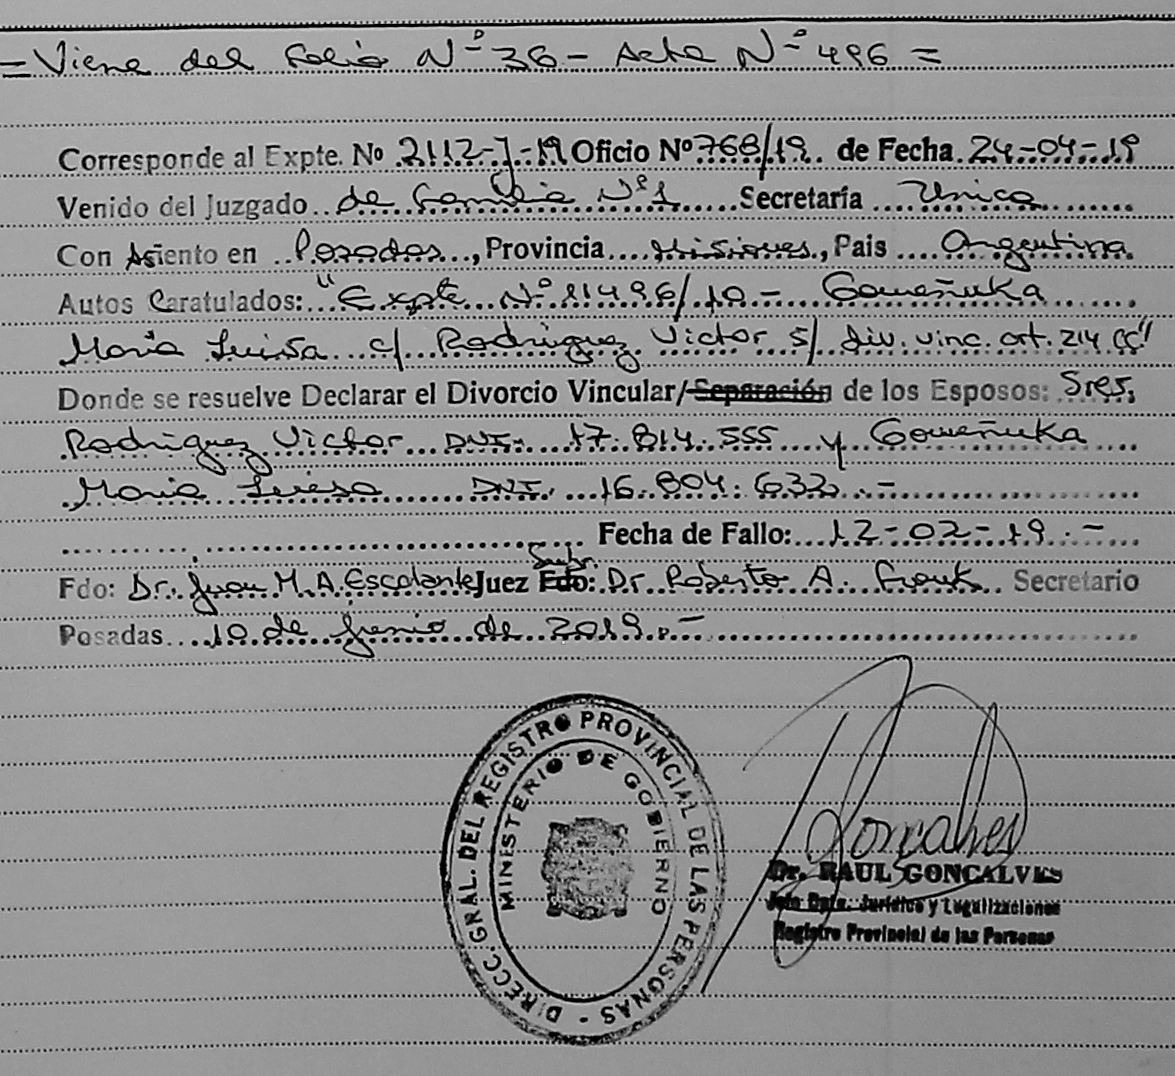 = Viene del Folio Nº 36 - Acta Nº 496 =
Corresponde al Expte. Nº 2112-J-19 Oficio Nº 768/19. de Fecha 24-04-19
Venido del Juzgado de Familia Nº 1 Secretaría Unica
Con Asiento en Posadas, Provincia Misiones, Pais Argentina
Autos Caratulados: "Expte Nº 81496/10 - Gomeñuka
Maria Luisa c/ Rodriguez Victor s/ div. vinc. art. 214 CC"
Donde se resuelve Declarar el Divorcio Vincular/Separación de los Esposos: Sres.
Rodriguez Victor DNI. 17.814.555 y Gomeñuka
Maria Teresa DNI. 16.804.632.-
Fecha de Fallo: 12-02-19.-
Subr.
Fdo: Dr. Juan M. A. Escalante Juez Fdo: Dr. Roberto A. Secretario
Posadas 10 de Junio de 2019.-
DIRECC. GRAL. DEL REGISTRO PROVINCIAL DE LAS PERSONAS -
MINISTERIO DE GOBIERNO
Goncalves
Dr. RAUL GONCALVES
Jefe Dpto. Jurídico y Legalizaciones
Registro Provincial de las Personas